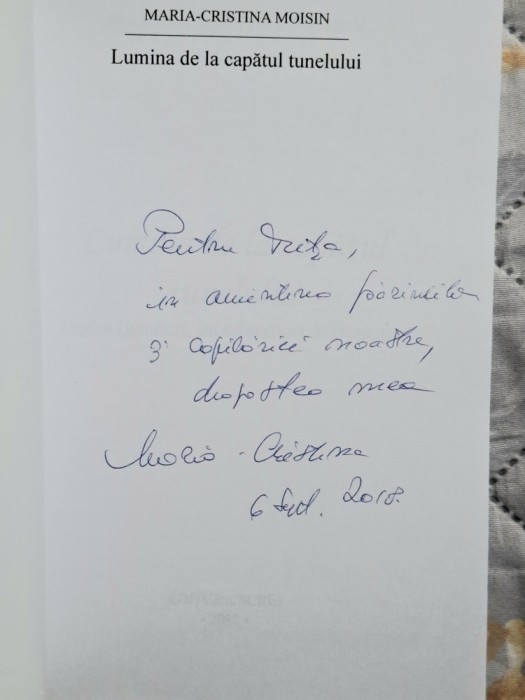 MARIA-CRISTINA MOISIN
Lumina de la capătul tunelului
Pentru
în amintirea părinților
și copilăriei noastre,
dragostea mea
Maria-Cristina
6 Sept. 2018.